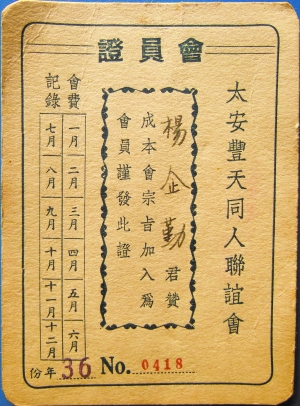 會員證
太安豐天同人聯誼會
楊企勤君贊
成本會宗旨加入為
會員謹發此證
會費記錄
一月 二月 三月 四月 五月 六月
七月 八月 九月 十月 十一月 十二月
36年份
No. 0418